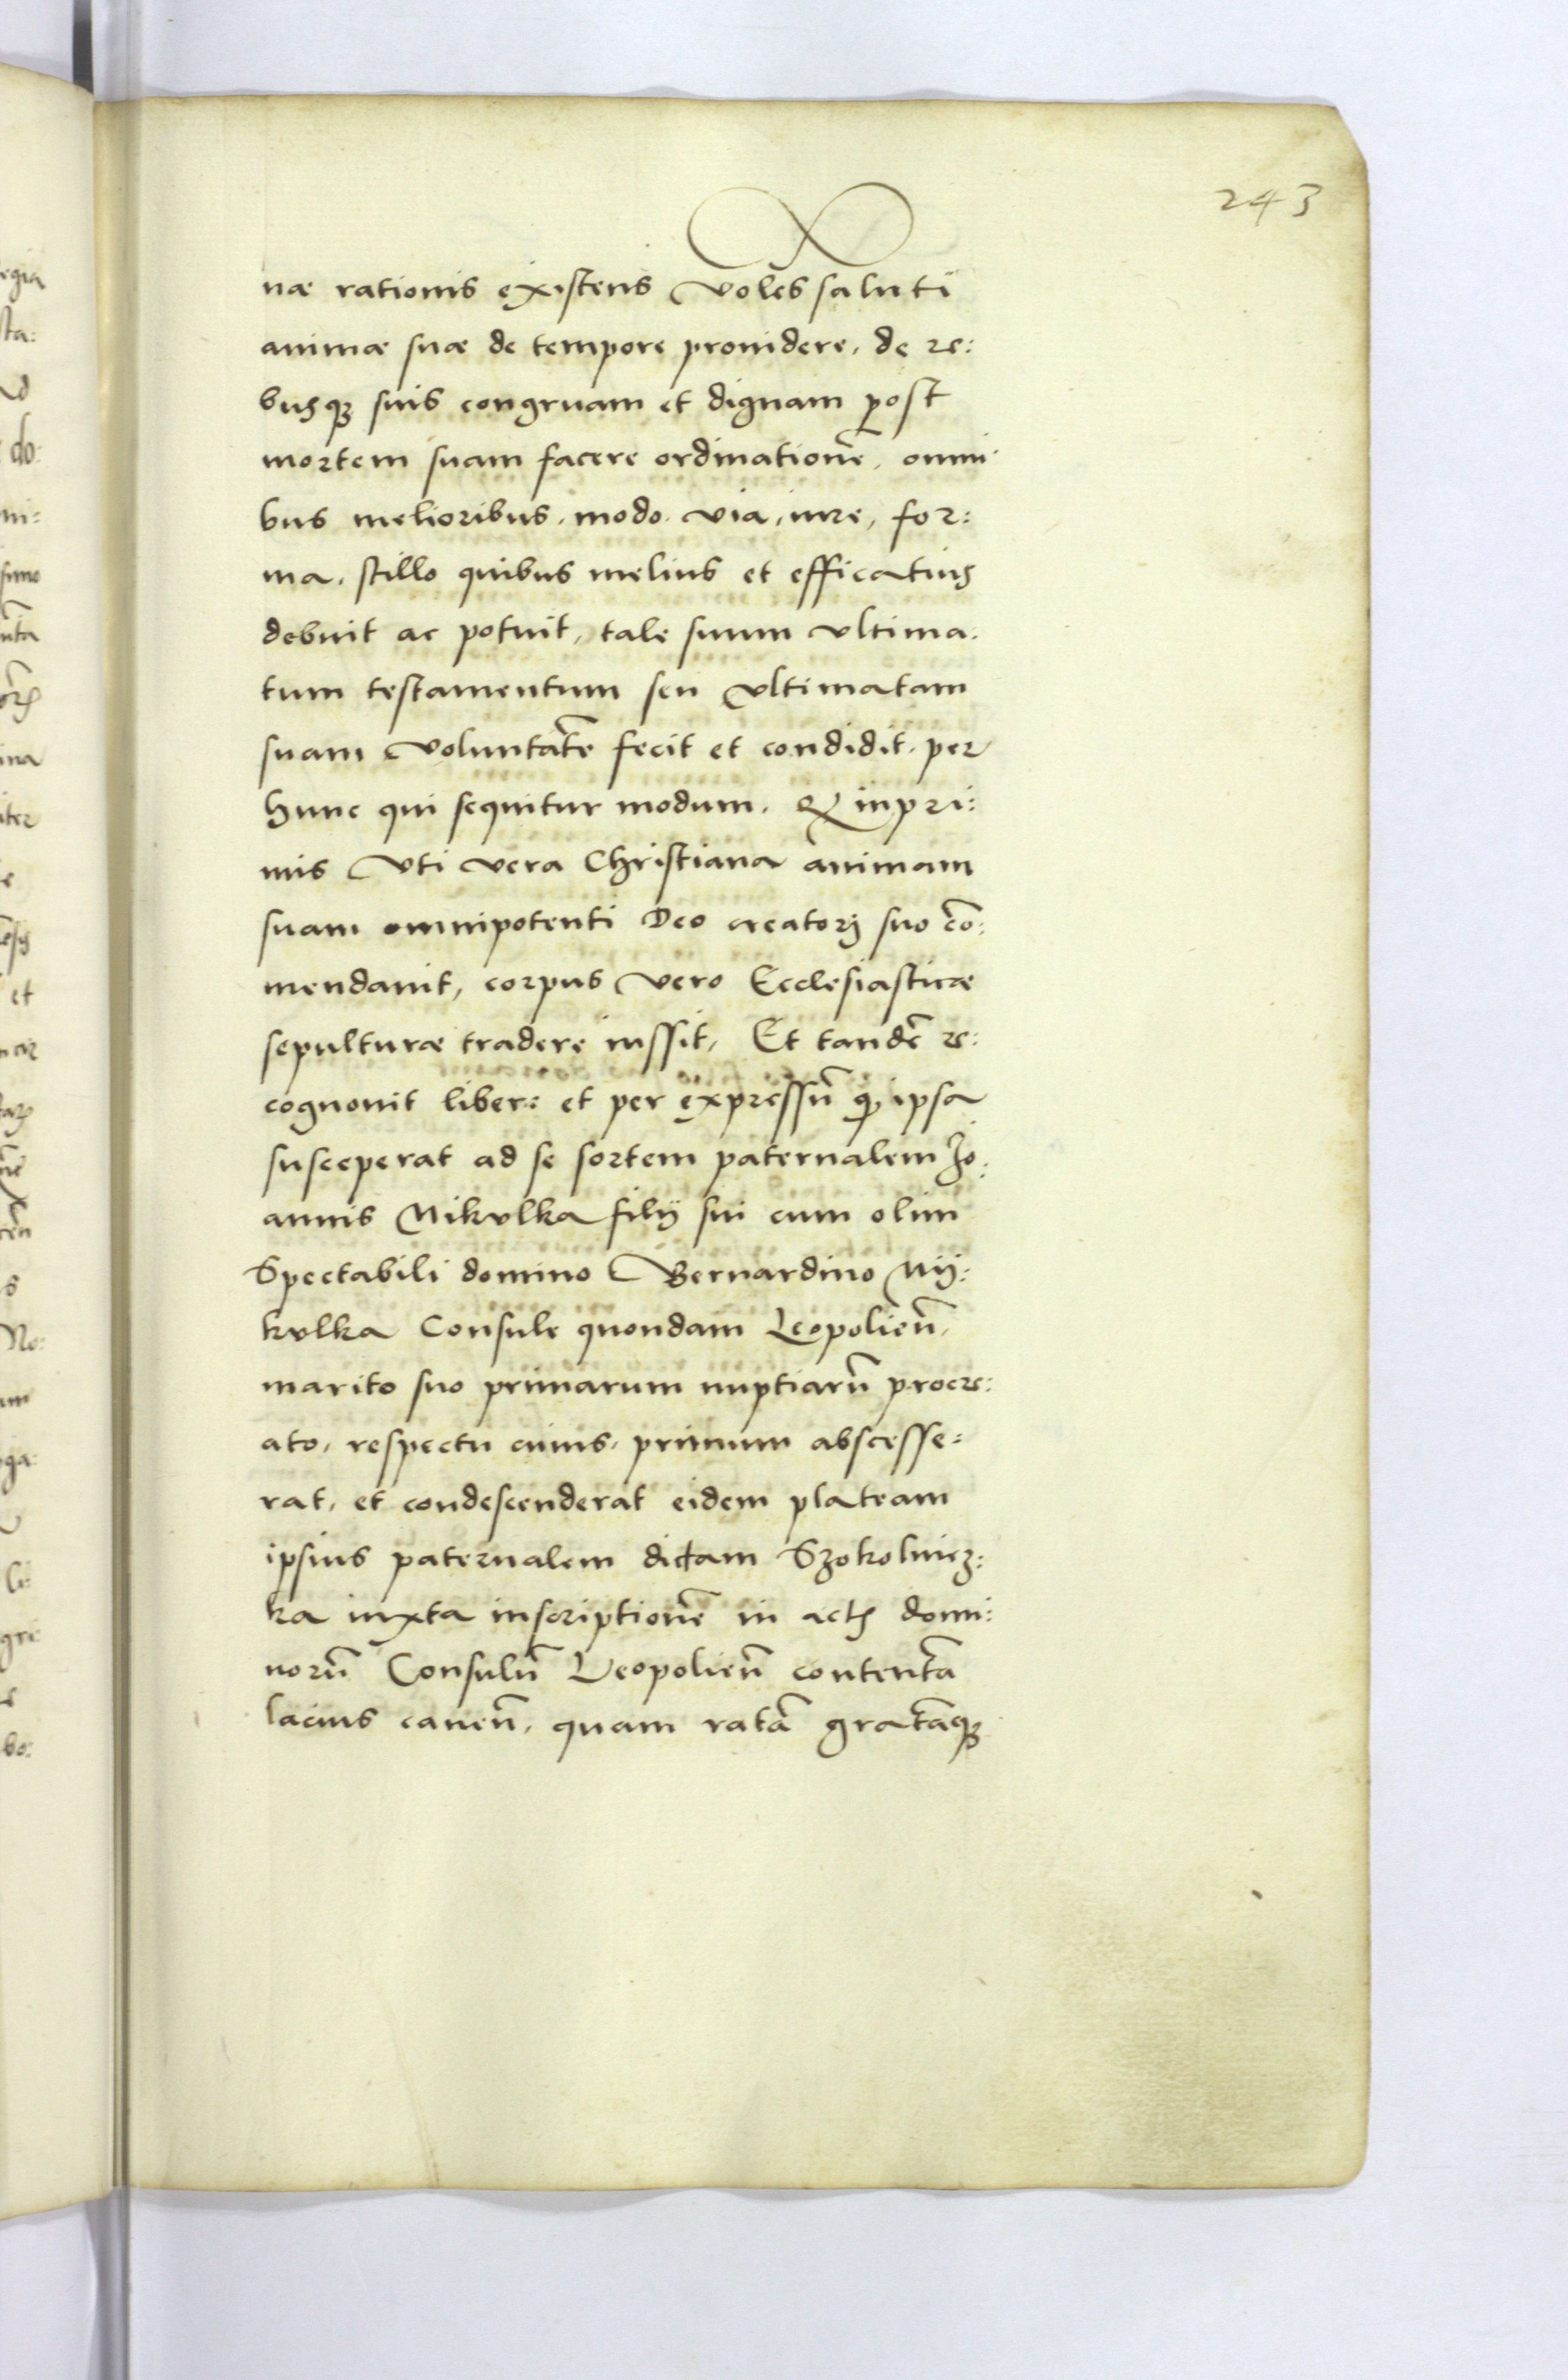 243
næ rationis existens Voles saluti
animæ suæ de tempore prouidere, de re:
busq3 suis congruam et dignam post
mortem suam facere ordinationē, omni
bus melioribus, modo, via, iure, for:
ma, stillo quibus melius et efficatius
debuit ac potuit, tale suum vltima:
tum testamentum seu vltimatam
suam Voluntatē fecit et condidit, per
hunc qui sequitur modum. Et inpri:
mis Vti vera Christiana animam
suam omnipotenti Deo creatorj suo cō:
mendauit, corpus vero Ecclesiasticæ
sepulturæ tradere iussit, Et tandē re:
cognouit liber: et per expressū q ipsa
susceperat ad se sortem paternalem Jo:
annis Nikvlka filij sui cum olim
Spectabili domino Bernardino Nij:
kvlka Consule quondam Leopolien̄,
marito suo primarum nuptiarū procre:
ato, respectu cuius, primum abscesse:
rat, et condescenderat eidem plateam
ipsius paternalem dictam Szokolnicz:
ka iuxta inscriptionē in actis domi:
norū Consulū Leopolien̄ contentā
lacius canen̄, quam ratā gratāq3